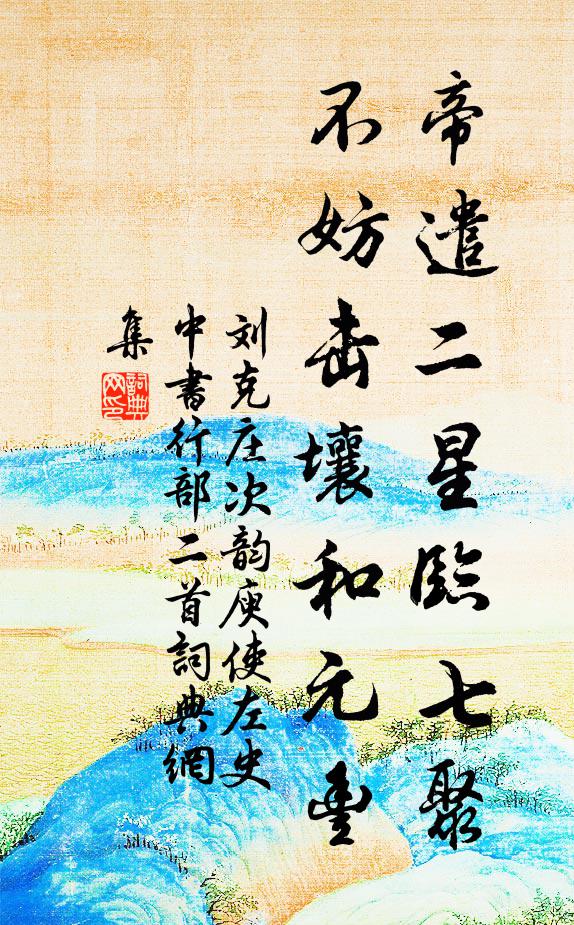 帝遣二星臨七聚
不妨击壤和元豊
刘克庄次韵庾使左史
中書行部二首詞典網
集
詞典
网印